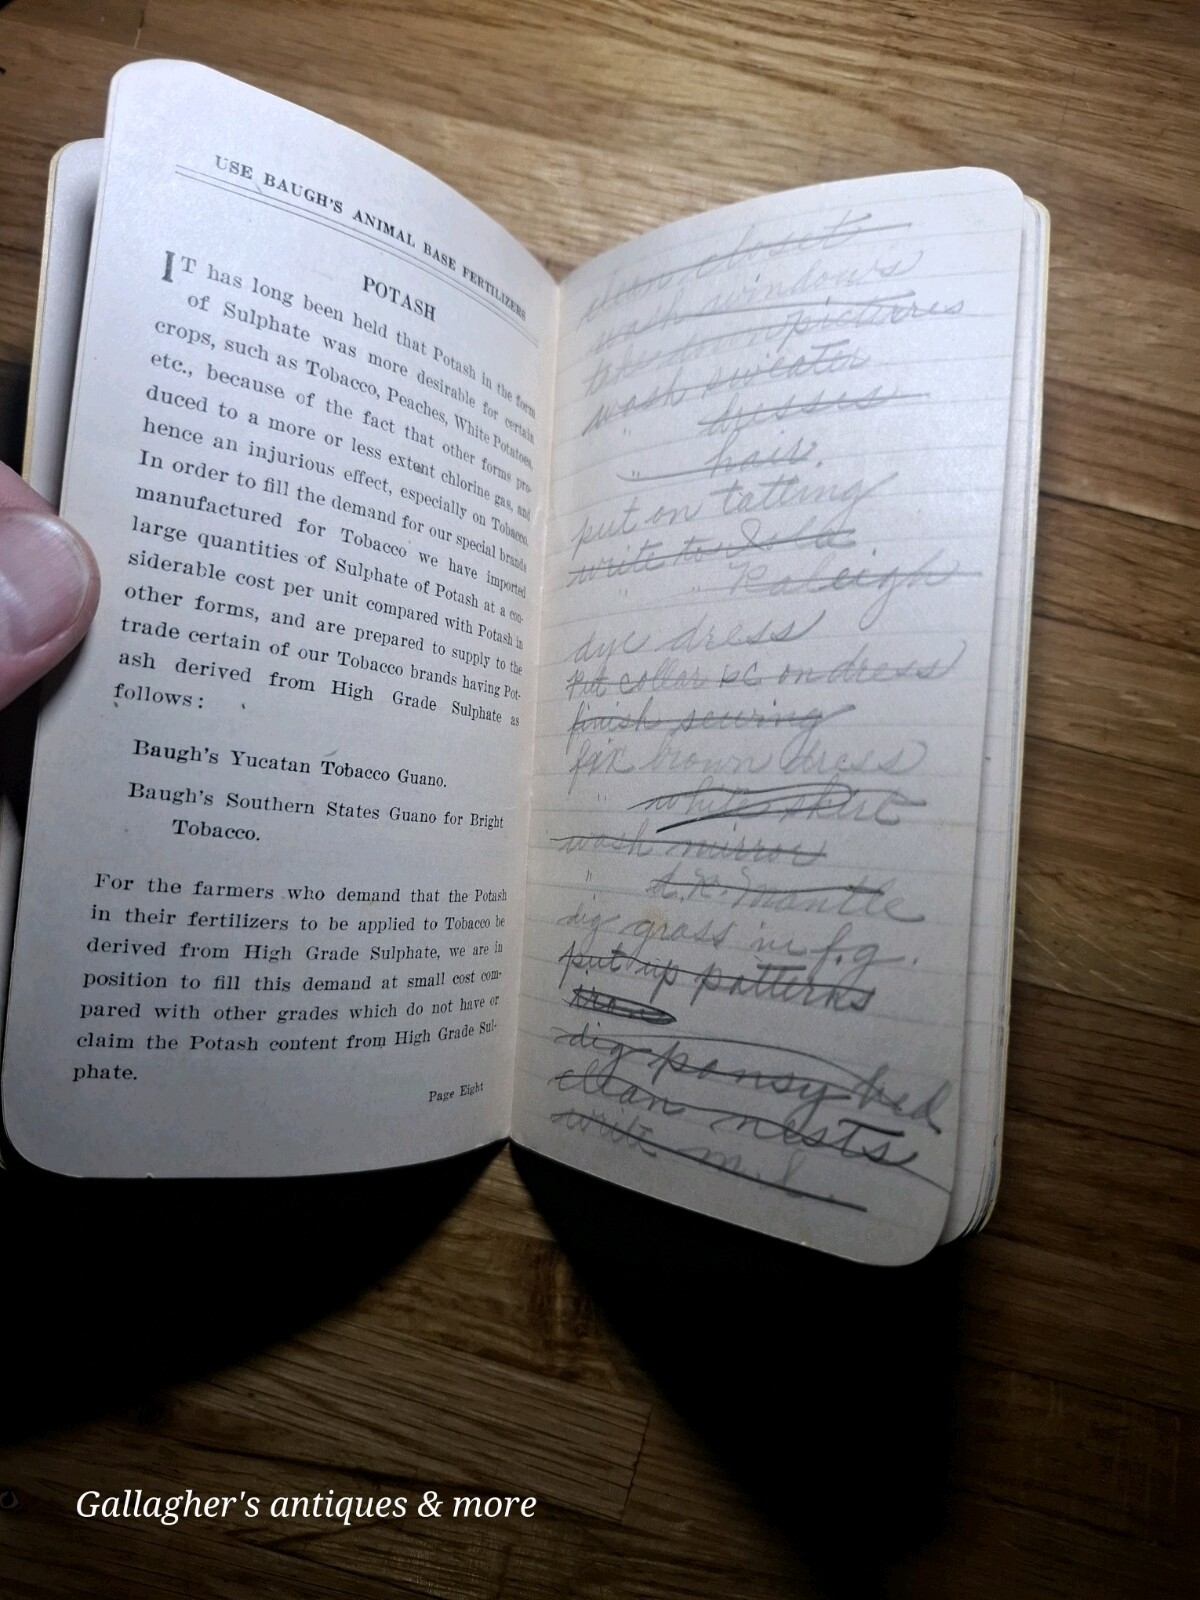 USE BAUGH'S ANIMAL BASE FERTILIZERS
POTASH
IT has long been held that Potash in the form
of Sulphate was more desirable for certain
crops, such as Tobacco, Peaches, White Potatoes,
etc., because of the fact that other forms pro-
duced to a more or less extent chlorine gas, and
hence an injurious effect, especially on Tobacco.
In order to fill the demand for our special brands
manufactured for Tobacco we have imported
large quantities of Sulphate of Potash at a con-
siderable cost per unit compared with Potash in
other forms, and are prepared to supply to the
trade certain of our Tobacco brands having Pot-
ash derived from High Grade Sulphate as
follows:
Baugh's Yucatan Tobacco Guano.
Baugh's Southern States Guano for Bright
Tobacco.
For the farmers who demand that the Potash
in their fertilizers to be applied to Tobacco be
derived from High Grade Sulphate, we are in
position to fill this demand at small cost com-
pared with other grades which do not have or
claim the Potash content from High Grade Sul-
phate.
Page Eight
clean closets
wash windows
take down pictures
wash sweater
" dresses
" hair.
put on tatting
write to Iola
" " Raleigh
dye dress
Put collar &c on dress
finish sewing
fix brown dress
" white skirt
wash mirror
" d. R. mantle
dig grass in f.g.
put up patterns
dig pansy bed
clean nests
write m. L.
Gallagher's antiques & more